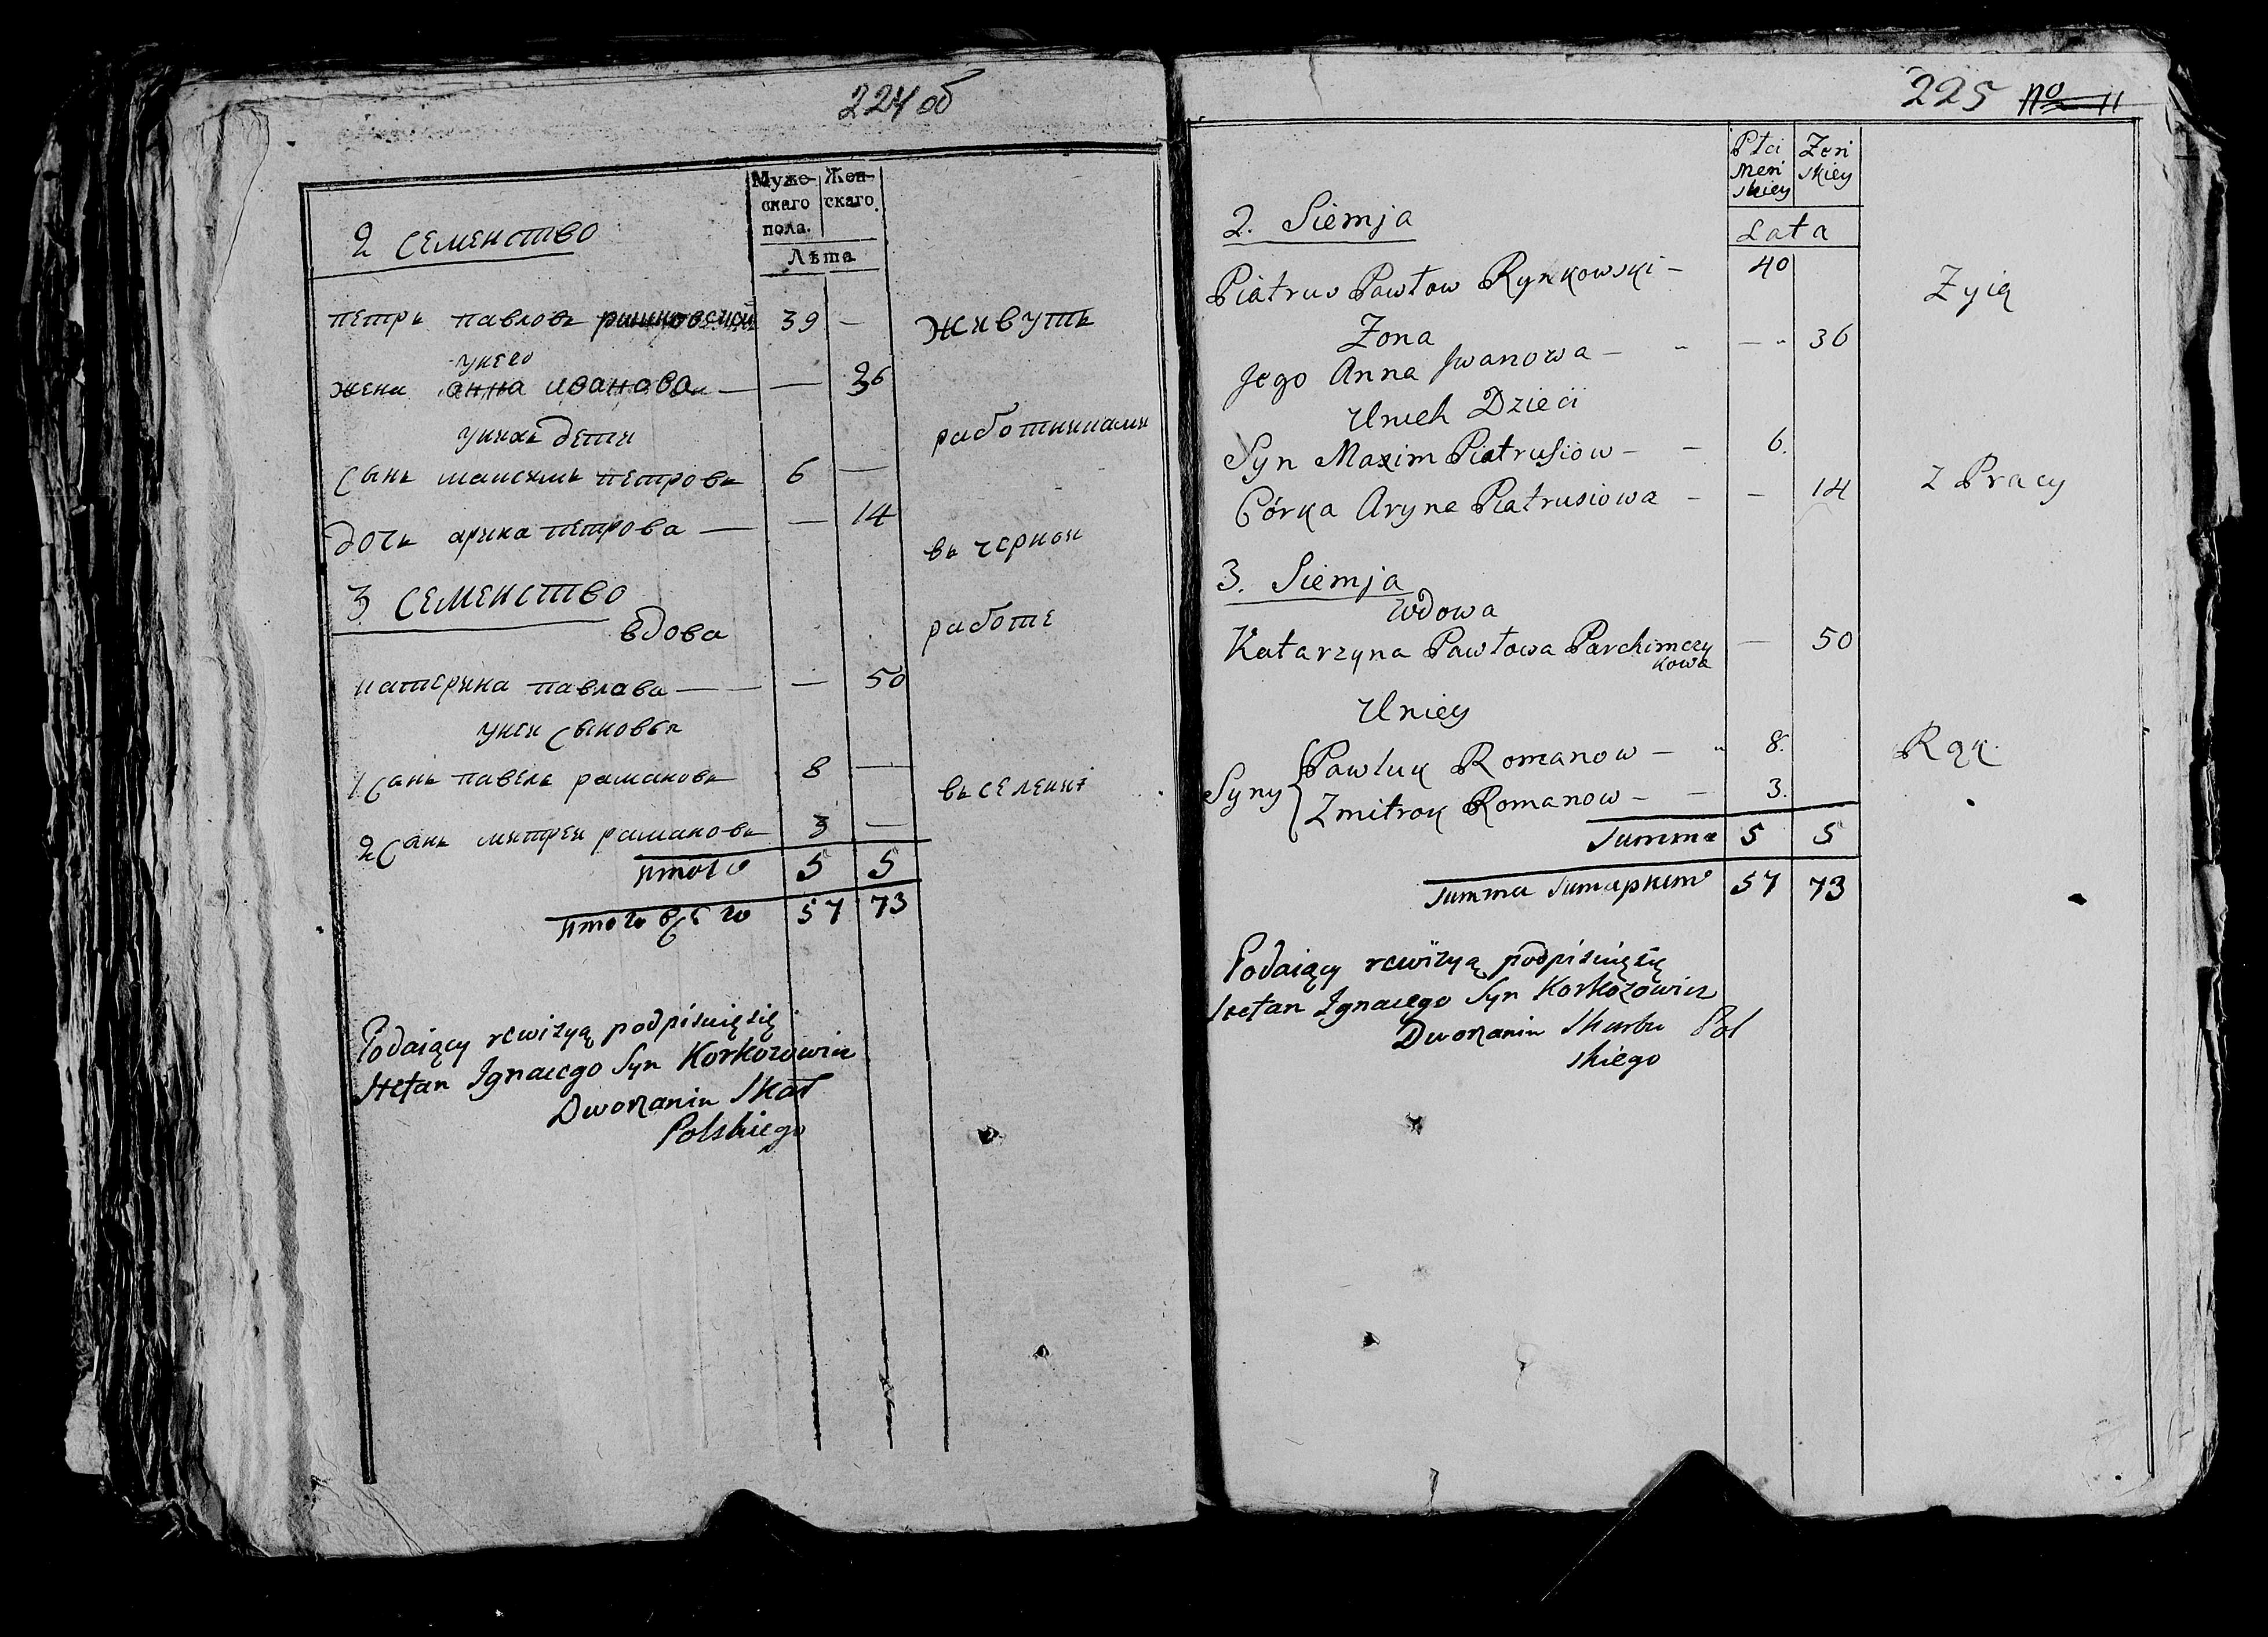 224 об
Муже- Жен-
скаго скаго.
пола.
Лѣта
2 семенство
петръ павловъ рынковской 39 — живутъ
унего
жена анна иванова — — 36
унихъ дети работниками
сынъ маисимъ петровъ 6 —
дочь арина петрова — — 14
въ черной
3 семенство
вдова работе
катерина павлава — — — 50
уней сыновья
1 санъ павелъ романовъ 8 — въ селении
2 санъ митрей романовъ 3 —
итого 5 5
итого всего 57 73
Podaiący rewizyą podpisuię się
Stefan Ignacego Syn Korkozowicz
Dworzanin Skar
Polskiego
225 No 11
Płci Żeń
Męń skiey
skiey
Lata
2. Siemja
Piatrus Pawłow Rynkowski — 40 Zyią
Zona
Jego Anna Jwanowa — „ — „ 36
Unich Dzieci
Syn Maxim Piatrusiow — — 6.
Córka Aryna Piatrusiowa — — 14 z Pracy
3. Siemja
Wdowa
Katarzyna Pawłowa Parchimczy — 50
kowa
Uniey
Syny { Pawluk Romanow — „ 8. Rąk.
Zmitrok Romanow — — 3.
Summa 5 5
Summa Sumaryczna 57 73
Podaiący rewizyą podpisuię się
Stefan Ignacego Syn Korkozowicz
Dworzanin Skarbu Pol
skiego